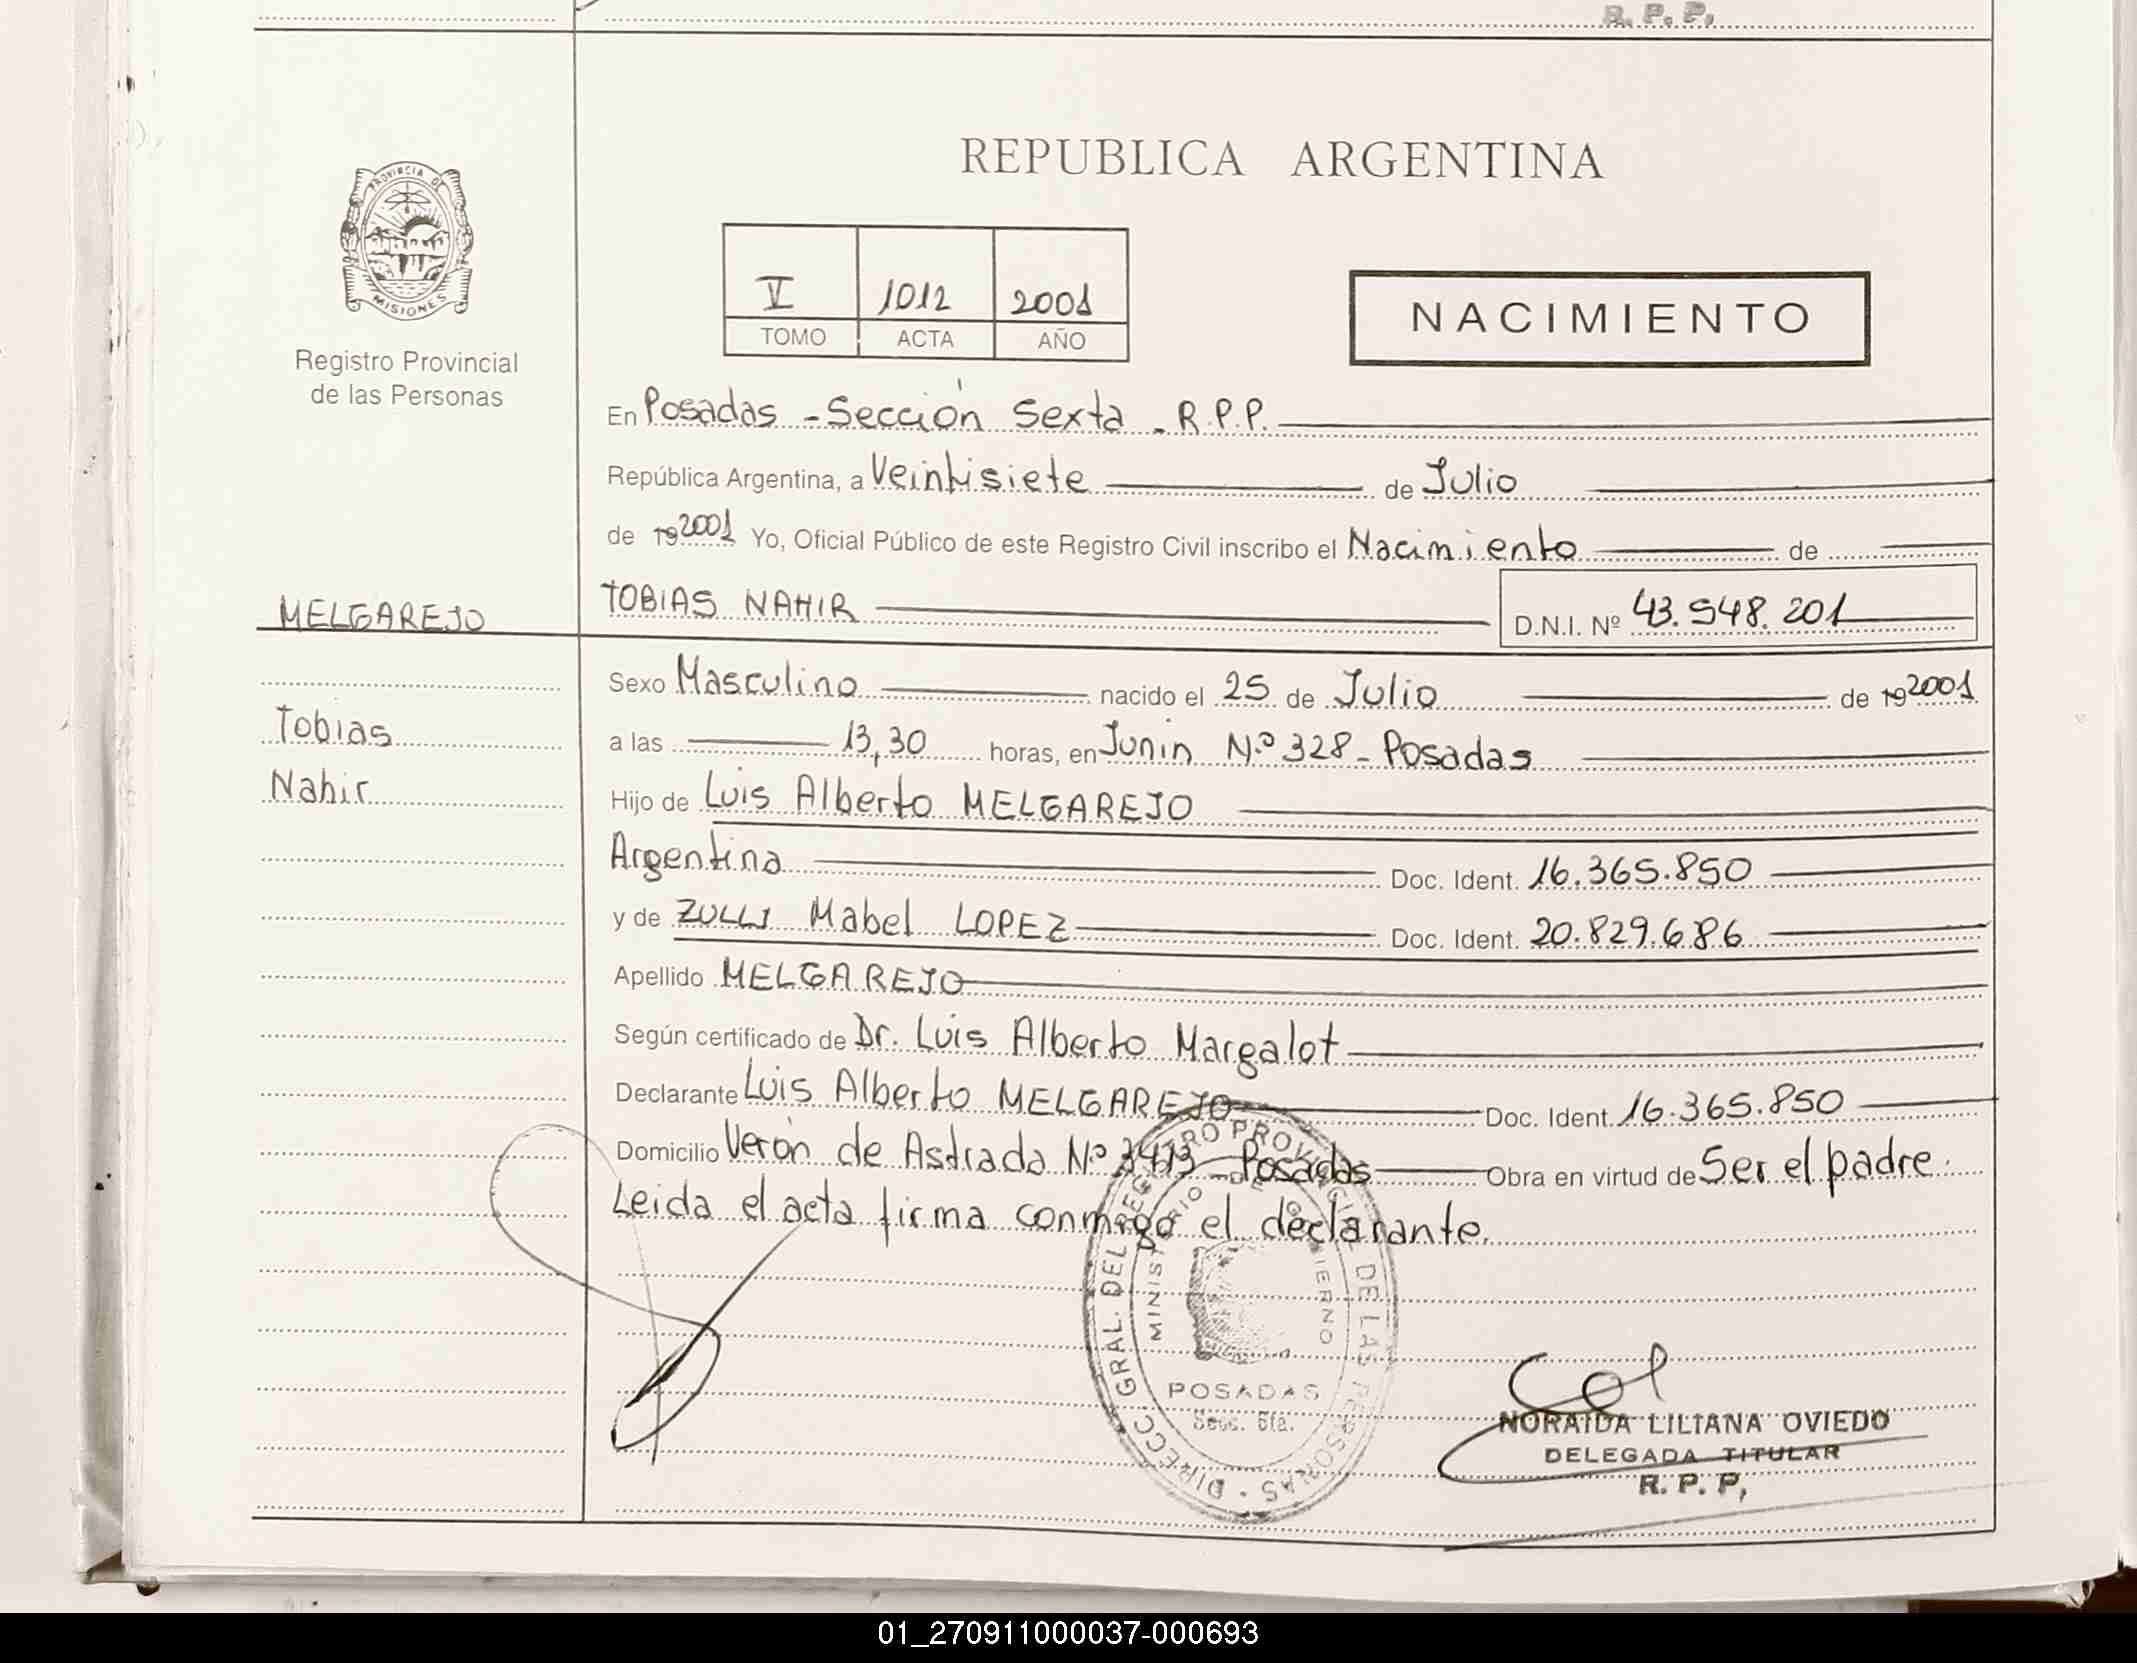 R. P. P,
REPUBLICA ARGENTINA
PROVINCIA DE
MISIONES
Registro Provincial
de las Personas
V 1012 2001
TOMO ACTA AÑO
NACIMIENTO
En Posadas - Sección Sexta - R.P.P.
República Argentina, a Veintisiete de Julio
de 192001 Yo, Oficial Público de este Registro Civil inscribo el Nacimiento de
MELGAREJO
TOBIAS NAHIR D.N.I. Nº 43.548.201
Sexo Masculino nacido el 25 de Julio de 192001
Tobias
a las 13,30 horas, en Junin N.º 328 - Posadas
Nahir
Hijo de Luis Alberto MELGAREJO
Argentina Doc. Ident. 16.365.850
y de ZULLI Mabel LOPEZ Doc. Ident. 20.829.686
Apellido MELGAREJO
Según certificado de Dr. Luis Alberto Margalot
Declarante Luis Alberto MELGAREJO Doc. Ident. 16.365.850
Domicilio Verón de Astrada N.º 3413 - Posadas Obra en virtud de Ser el padre.
Leida el acta firma conmigo el declarante.
DIRECC. GRAL. DEL REGISTRO PROVINCIAL DE LAS PERSONAS
MINISTERIO DE GOBIERNO
POSADAS
Secc. 6ta.
NORAIDA LILIANA OVIEDO
DELEGADA TITULAR
R. P. P,
01_270911000037-000693